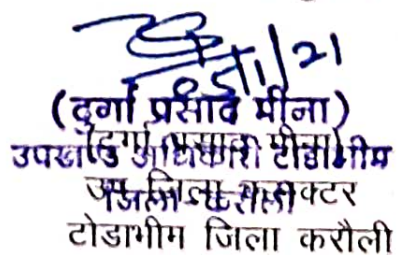 /21
(दुर्गा प्रसाद मीना)
(दुर्गा प्रसाद मीना)
उपखण्ड अधिकारी टोडाभीम
उप जिला कलक्टर
जिला करौली
टोडाभीम जिला करौली